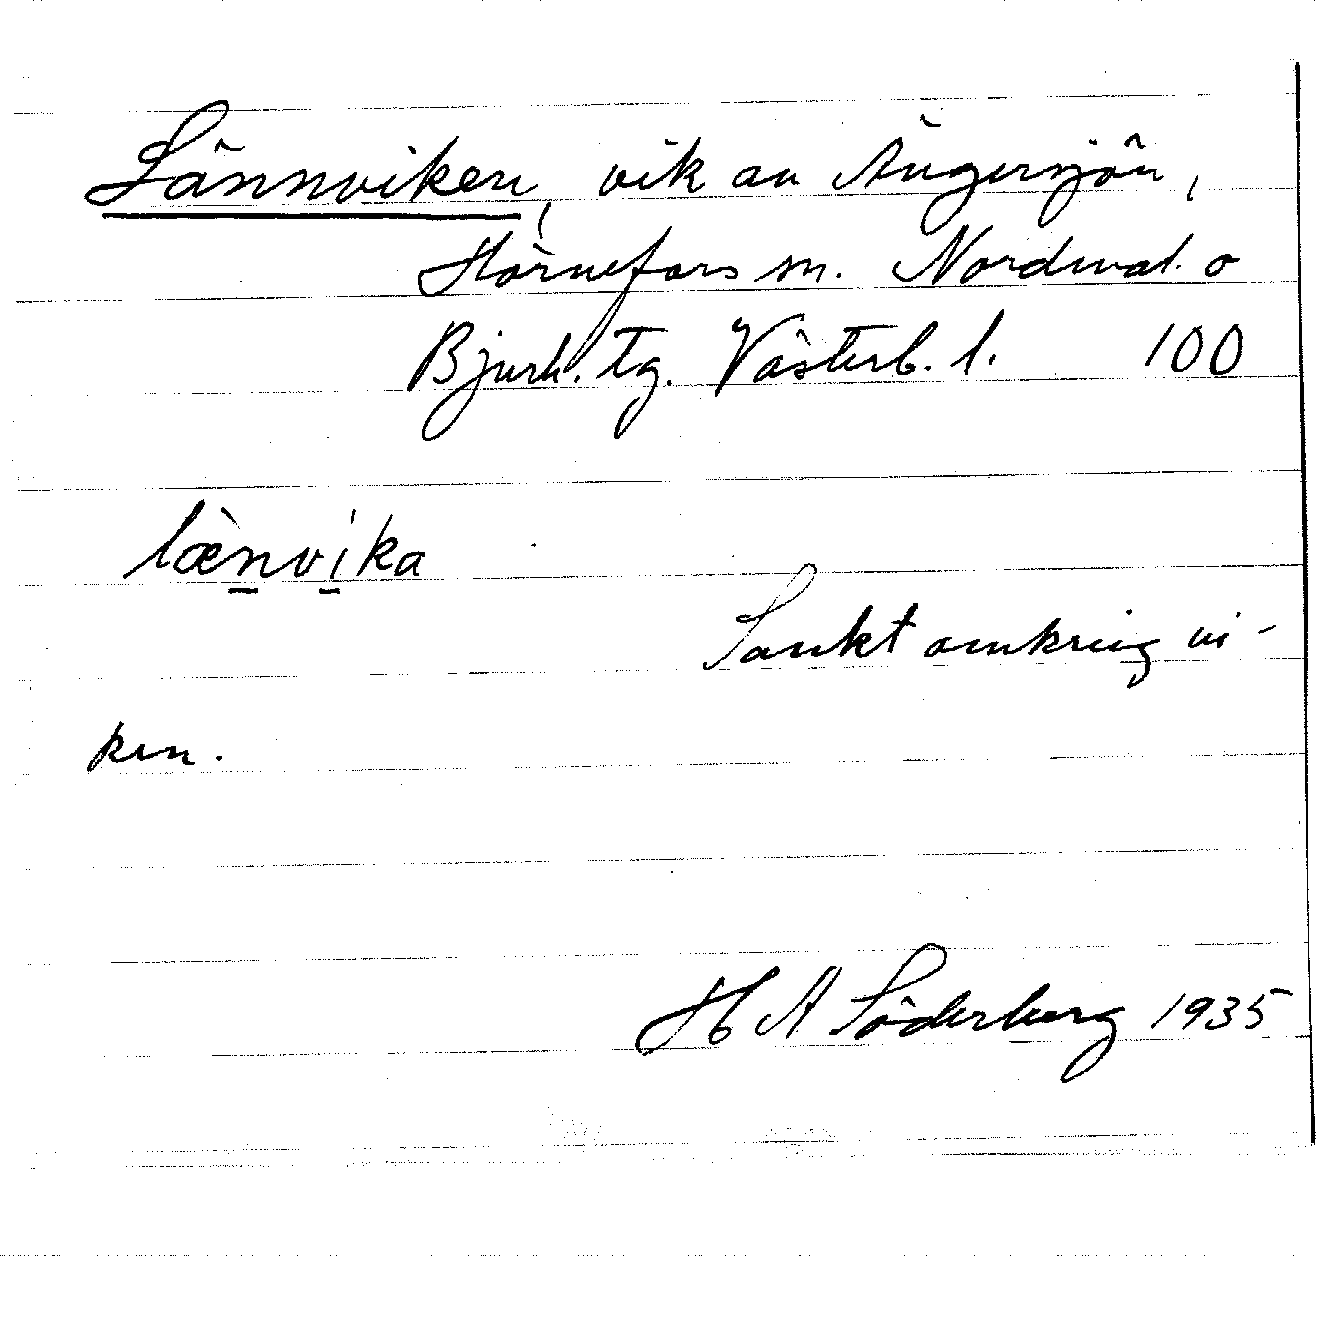 Lännviken, vik av Ängersjön,
Hörnefors sn. Nordmal. o
Bjurh. tg. Västerb. l. 100
læ̀n̲vi̲ka
Sankt omkring vi-
ken.
H A Söderberg 1935